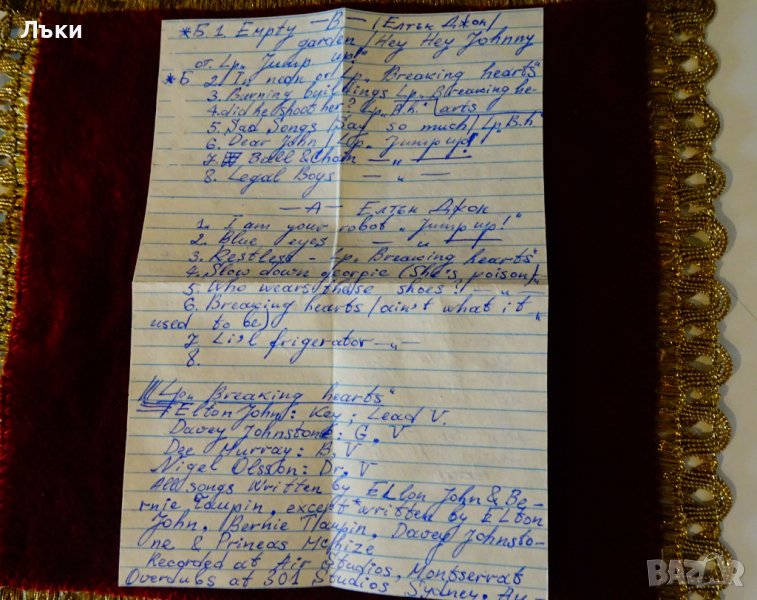 Лъки
*Б 1 Empty — В — /Елтън Джон/
garden /Hey Hey Johnny
от Lp„ Jump up!"
*Б 2. In neon от Lp„ Breaking hearts"
3. Burning buildings Lp„ Breaking he-
4. did he shoot her? Lp„ B.h." arts
5. Sad Songs /Say so much/ Lp„ B.h."
6. Dear John /Lp„ Jump up!
7. Ball & Chain — „ —
8. Legal Boys — „ —
— А — Елтън Джон
1. I am your robot „ Jump up!"
2. Blue eyes — „ —
3. Restless - Lp„ Breaking hearts"
4. Slow down georgie (She's poison)„
5. Who wears these shoes? — „ —
6. Breaking hearts /ain't what it „
used to be)
7. Li'l frigerator — „ —
8.
Lp„ Breaking hearts"
*Elton John: Key; Lead V.
Davey Johnstone: G. V
Dee Murray: B. V
Nigel Olsson: Dr. V
All songs written by Elton John & Be-
rnie Taupin, except* written by Elton
John, Bernie Taupin, Davey Johnsto-
ne & Prineas McHize
Recorded at Air Studios, Montserrat
Overdubs at 301 Studios Sydney, Au-
BAZAR